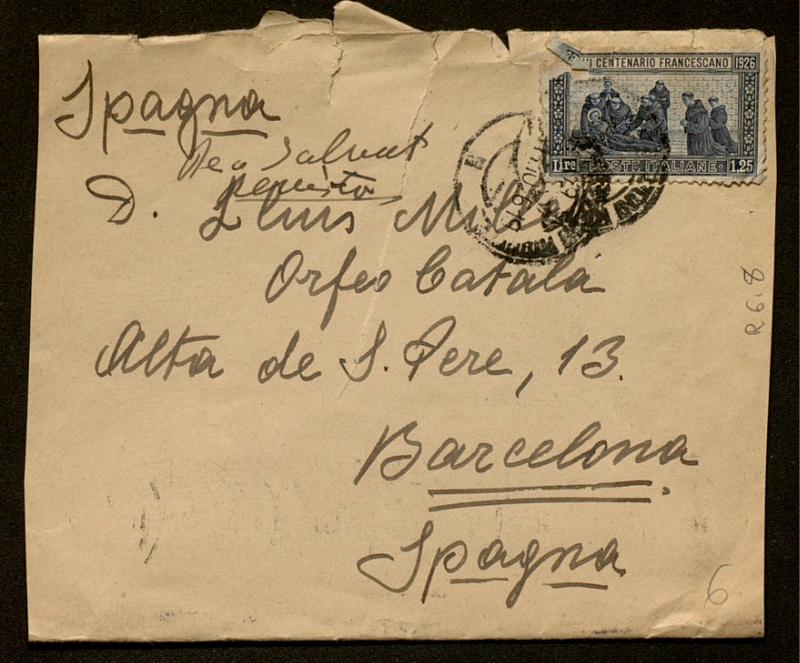 Spagna
VII CENTENARIO FRANCESCANO 1926
Lire POSTE ITALIANE 1.25
Salvat
D. Lluis Millet
Orfeo Català
Alta de S. Pere, 13.
Barcelona
Spagna
R 6.8
6